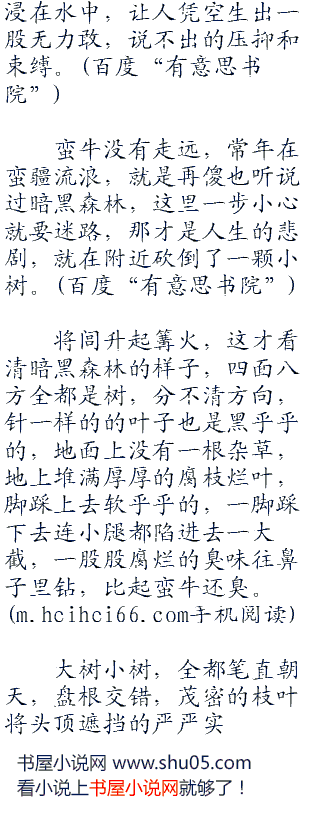 浸在水中，让人凭空生出一
股无力敢，说不出的压抑和
束缚。(百度“有意思书
院”)
蛮牛没有走远，常年在
蛮疆流浪，就是再傻也听说
过暗黑森林，这里一步小心
就要迷路，那才是人生的悲
剧，就在附近砍倒了一颗小
树。(百度“有意思书院”)
将闾升起篝火，这才看
清暗黑森林的样子，四面八
方全都是树，分不清方向，
针一样的的叶子也是黑乎乎
的，地面上没有一根杂草，
地上堆满厚厚的腐枝烂叶，
脚踩上去软乎乎的，一脚踩
下去连小腿都陷进去一大
截，一股股腐烂的臭味往鼻
子里钻，比起蛮牛还臭。
(m.hcihci66.com手机阅读)
大树小树，全都笔直朝
天，盘根交错，茂密的枝叶
将头顶遮挡的严严实
书屋小说网 www.shu05.com
看小说上书屋小说网就够了！